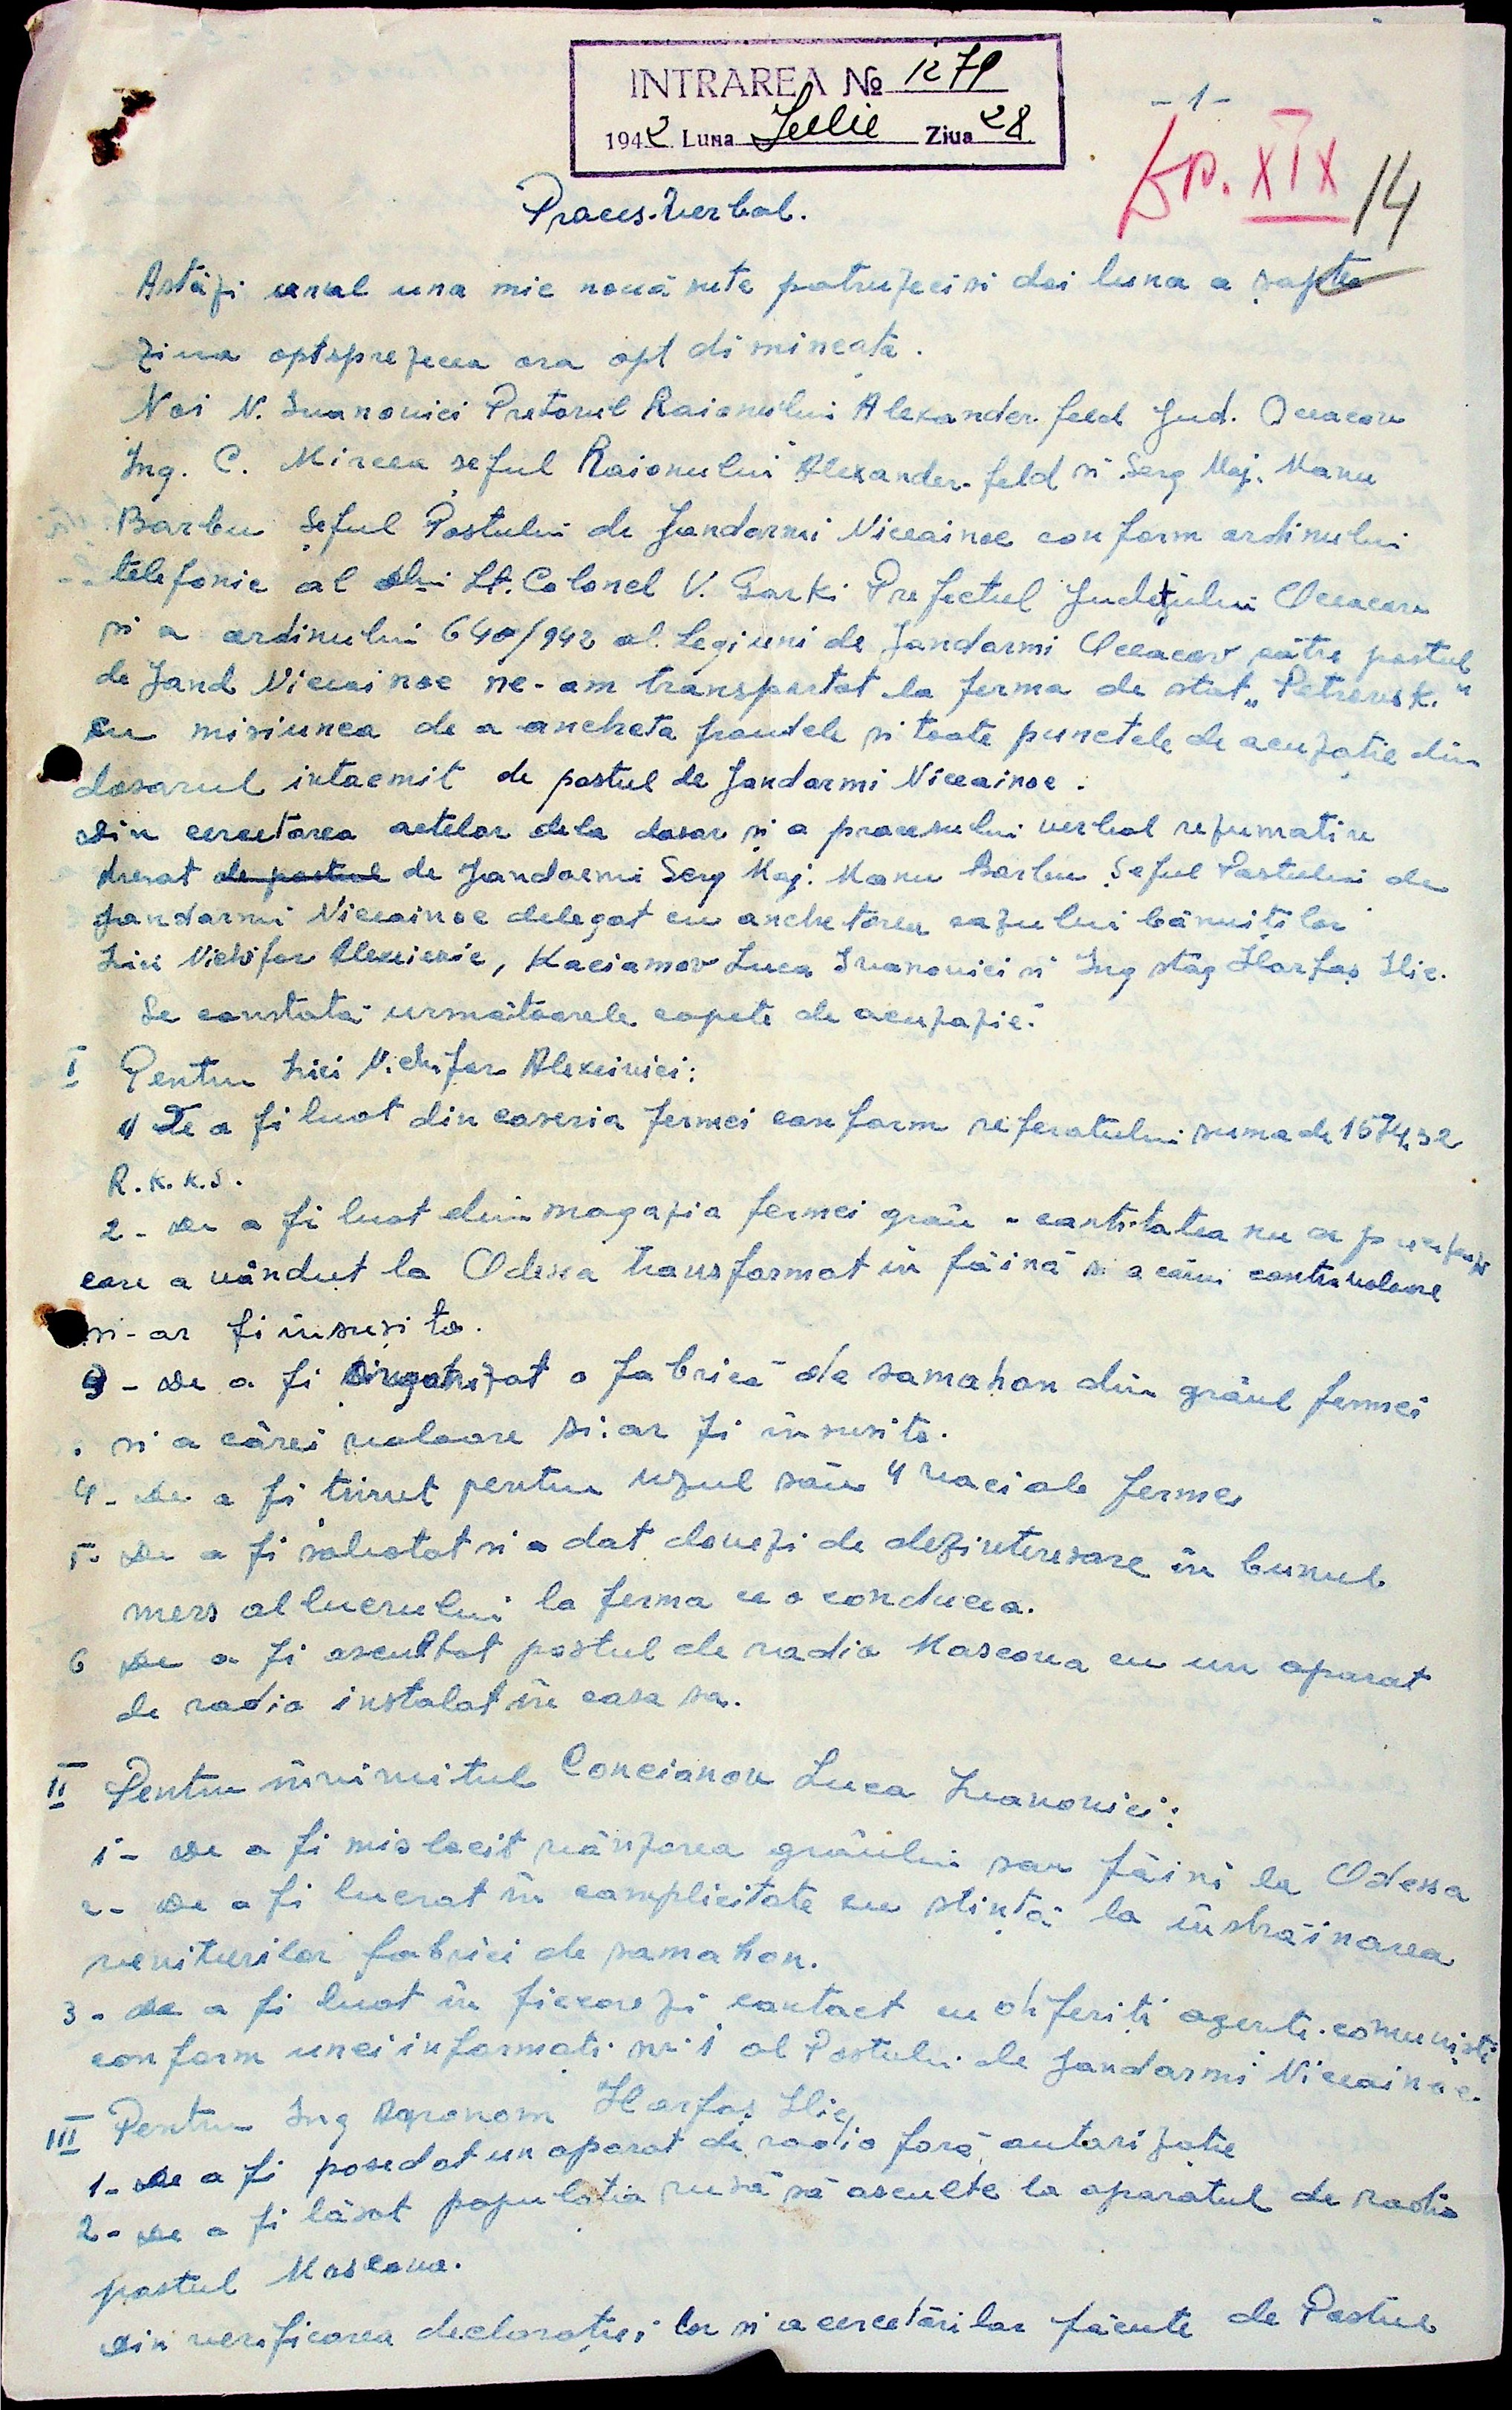 INTRAREA № 1279
1942 Luna Iulie Ziua 28
- 1 -
XIX
14
Proces-Verbal.
Astăzi anul una mie nouă sute patruzeci si doi luna a șaptea
ziua optsprezecea ora opt dimineața.
Noi N. Ivanovici Pretorul Raionului Alexander-feld Jud. Oceacov
Ing. C. Mircea șeful Raionului Alexander-feld si Serg Maj. Manu
Barbu Șeful Postului de Jandarmi Niceainoe conform ordinului
telefonic al dlui Lt. Colonel V. Gorki Prefectul Județului Oceacov
si a ordinului 640/942 al Legiuni de Jandarmi Oceacov către postul
de Jand Niceainoe ne-am transportat la ferma de stat „Petrovsk."
cu misiunea de a ancheta fraudele si toate punctele de acuzație din
dosarul intocmit de postul de Jandarmi Niceainoe.
Din cercetarea actelor dela dosar si a procesului verbal rezumativ
dresat de postul de Jandarmi Serg Maj. Manu Barbu Șeful Postului de
Jandarmi Niceainoe delegat cu anchetarea cazului bănuiților
Nichifor, Kaciamov Luca Ivanovici si Ing stag Harfaș Ilie.
Se constată următoarele capete de acuzație:
I Pentru Nichifor Alexeivici:
1) De a fi luat din caseria fermei conform referatului suma de 1574,32
R.K.K.S.
2 - De a fi luat din magazia fermei grâu - cantitatea nu se
care a vândut la Odessa transformat în făină si a cărui contravaloare
si-ar fi însușita.
3 - De a fi organizat o fabrică de samahon din grâul fermei
si a cărei valoare si-ar fi însusita.
4 - De a fi tinut pentru uzul său 4 vaci ale fermei
5 - De a fi sabotat si a dat dovezi de dezinteresare în bunul
mers al lucrului la ferma ce o conducea.
6 De a fi ascultat postul de radio Moscova cu un aparat
de radio instalat în casa sa.
II Pentru învinuitul Concianov Luca Ivanovici:
1 - De a fi mislocit vânzarea grâului sau făini la Odessa
2 - De a fi lucrat în complicitate cu stiință la înstrăinarea
veniturilor fabrici de samahon.
3 - De a fi luat în fiecare zi contact cu diferiți agenti comuniști
conform unei informati nr. 1 al Postului de Jandarmi Niceainoe.
III Pentru Ing Agronom Harfaș Ilie
1 - De a fi posedat un aparat de radio fară autorizație
2 - De a fi lăsat populația rusă să asculte la aparatul de radio
postul Moscova.
Din verificarea declarației lor si a cercetărilor făcute de Postul